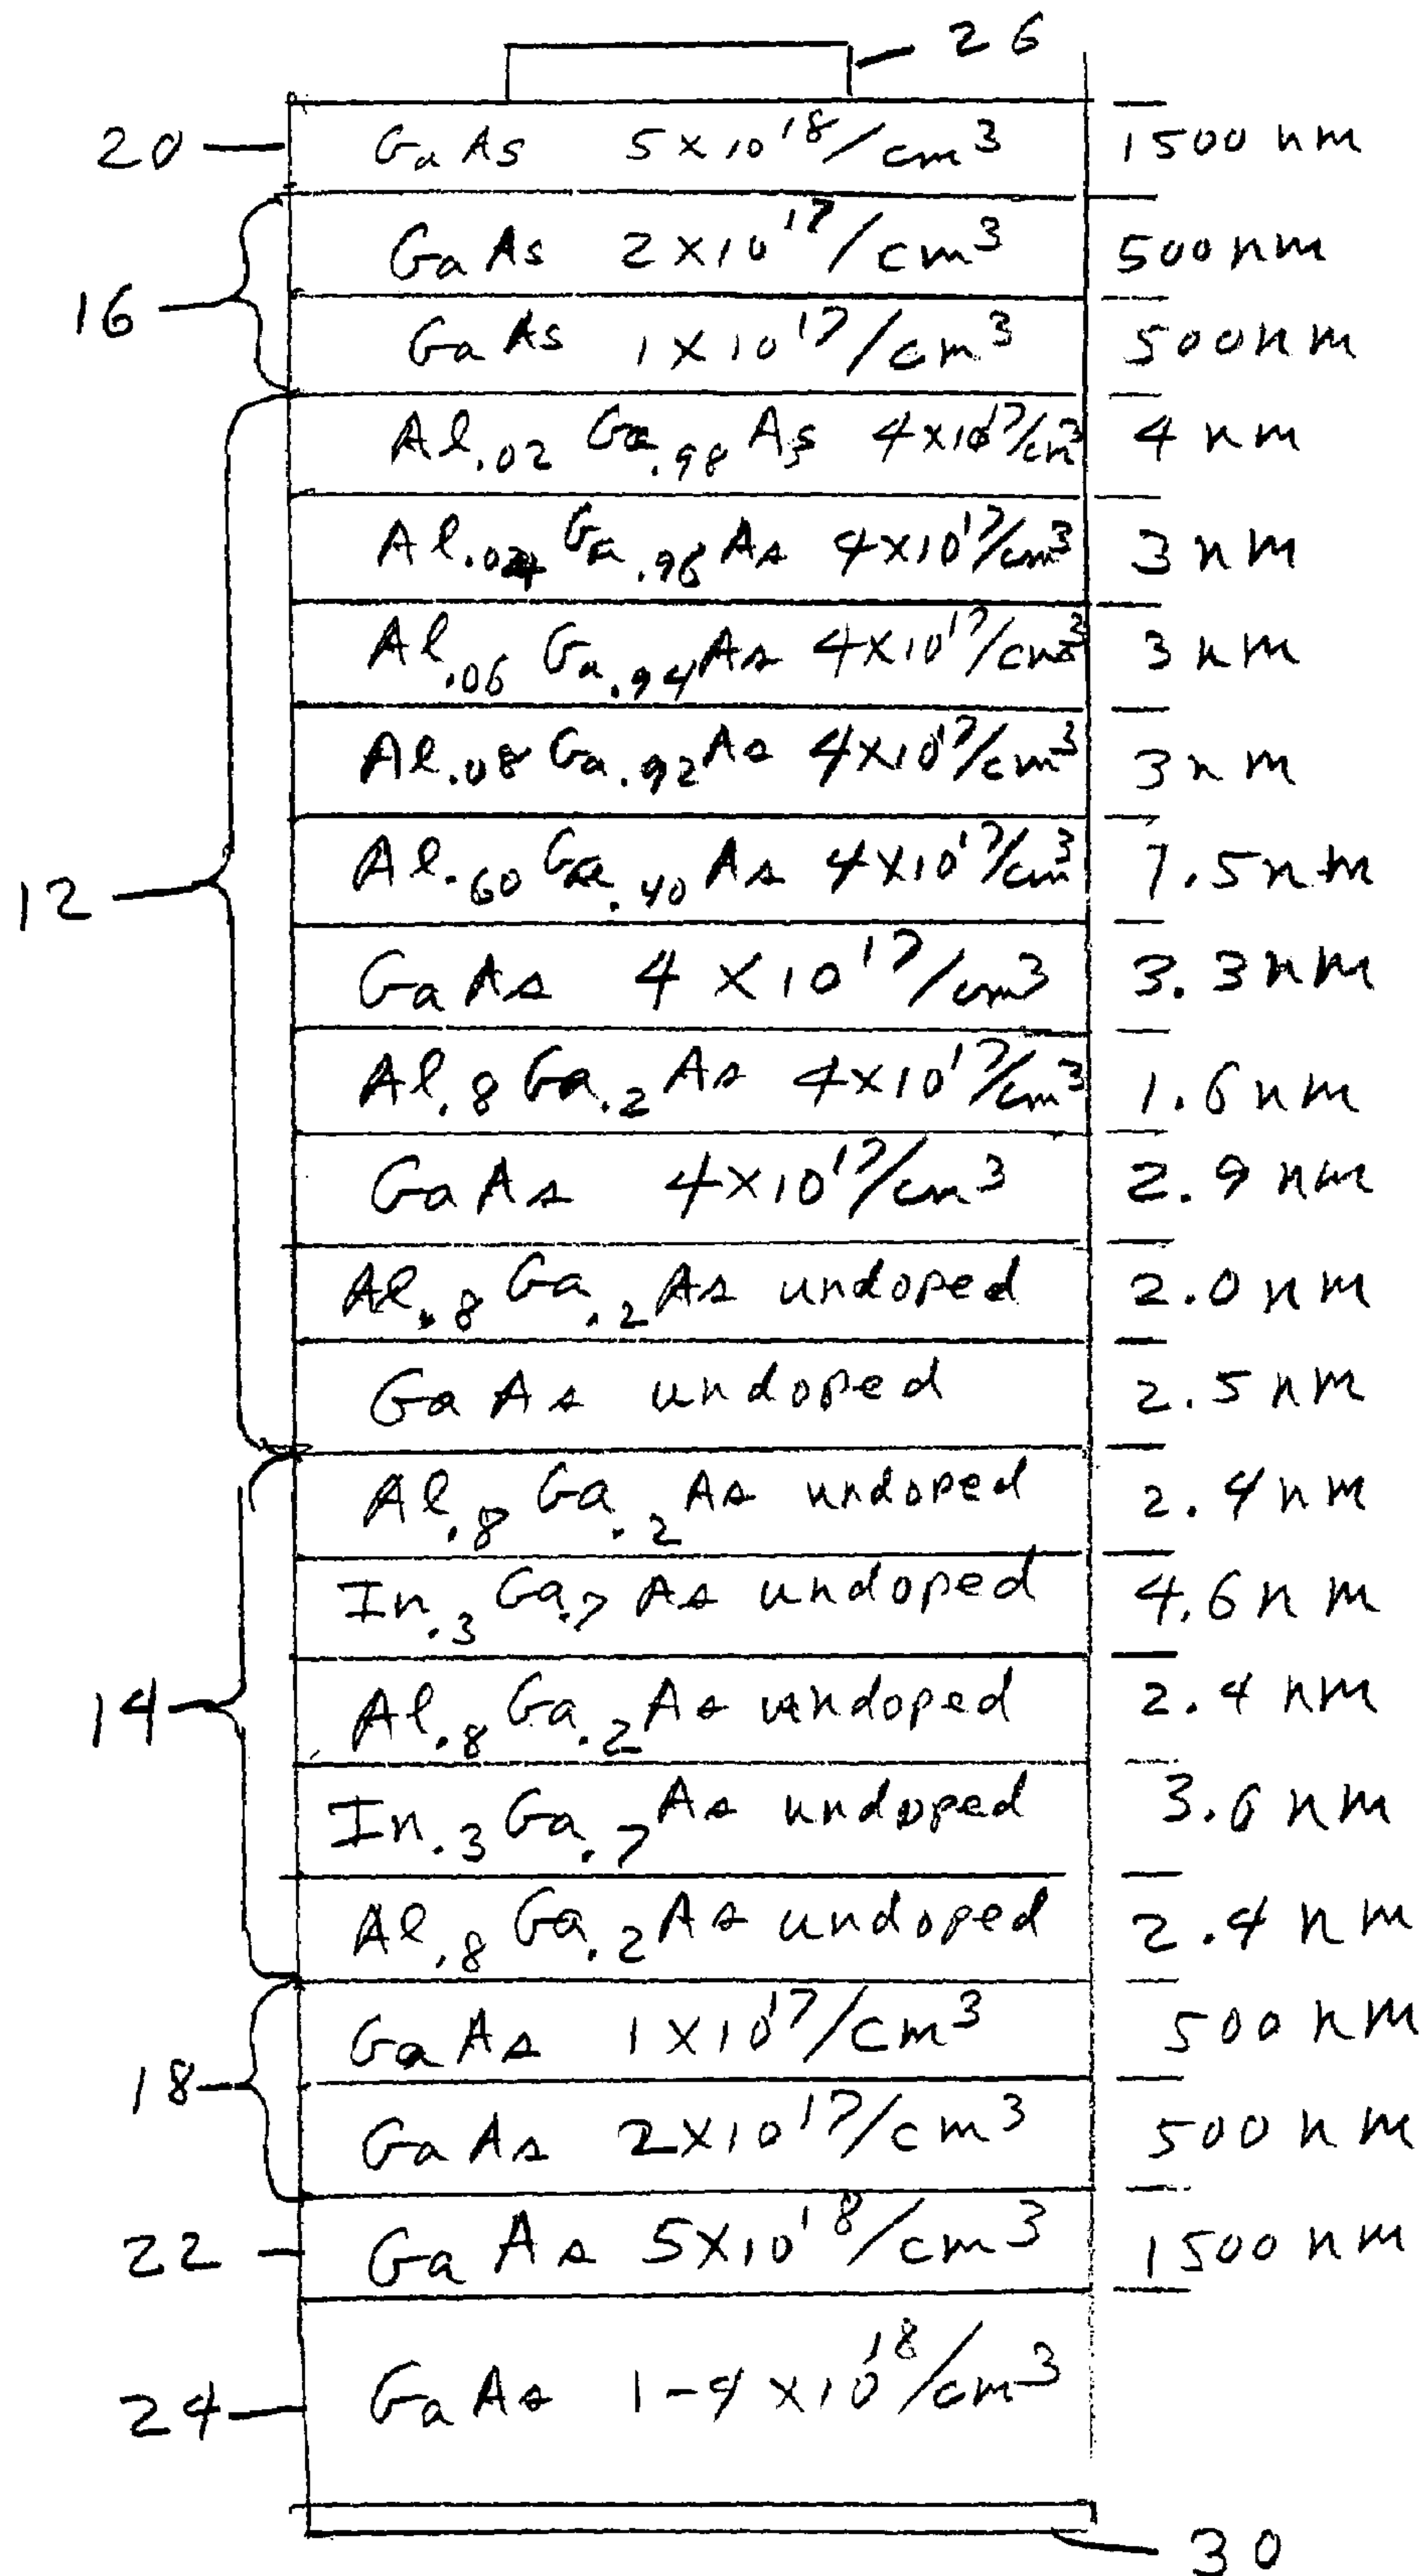 26
20 GaAs 5×10¹⁸/cm³ 1500 nm
GaAs 2×10¹⁷/cm³ 500 nm
16
GaAs 1×10¹⁷/cm³ 500 nm
Al.02 Ga.98 As 4×10¹⁷/cm³ 4 nm
Al.04 Ga.96 As 4×10¹⁷/cm³ 3 nm
Al.06 Ga.94 As 4×10¹⁷/cm³ 3 nm
Al.08 Ga.92 As 4×10¹⁷/cm³ 3 nm
12 Al.60 Ga.40 As 4×10¹⁷/cm³ 1.5 nm
GaAs 4×10¹⁷/cm³ 3.3 nm
Al.8 Ga.2 As 4×10¹⁷/cm³ 1.6 nm
GaAs 4×10¹⁷/cm³ 2.9 nm
Al.8 Ga.2 As undoped 2.0 nm
GaAs undoped 2.5 nm
Al.8 Ga.2 As undoped 2.4 nm
In.3 Ga.7 As undoped 4.6 nm
14 Al.8 Ga.2 As undoped 2.4 nm
In.3 Ga.7 As undoped 3.6 nm
Al.8 Ga.2 As undoped 2.4 nm
GaAs 1×10¹⁷/cm³ 500 nm
18
GaAs 2×10¹⁷/cm³ 500 nm
22 GaAs 5×10¹⁸/cm³ 1500 nm
24 GaAs 1-4×10¹⁸/cm³
30